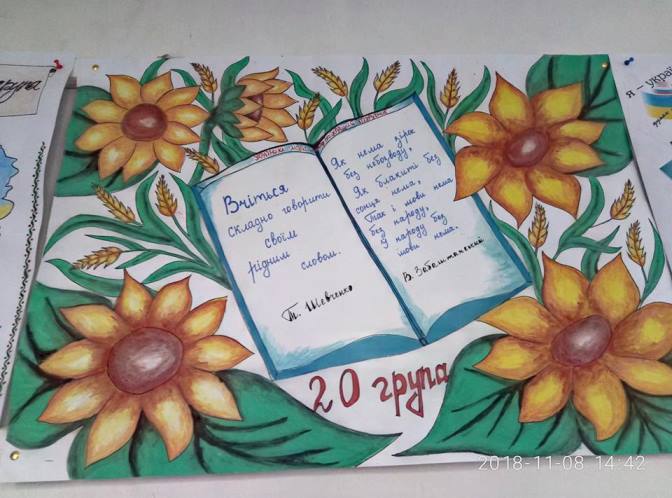 Вчіться
складно говорити
своїм
рідним словом.
Т. Шевченко
Як нема зірок
без небозводу,
Як блакиті без
сонця нема,
Так і мови нема
без народу,
й народу без
мови нема.
В. Забаштанський
20 група
я – украї
2018-11-08 14:42